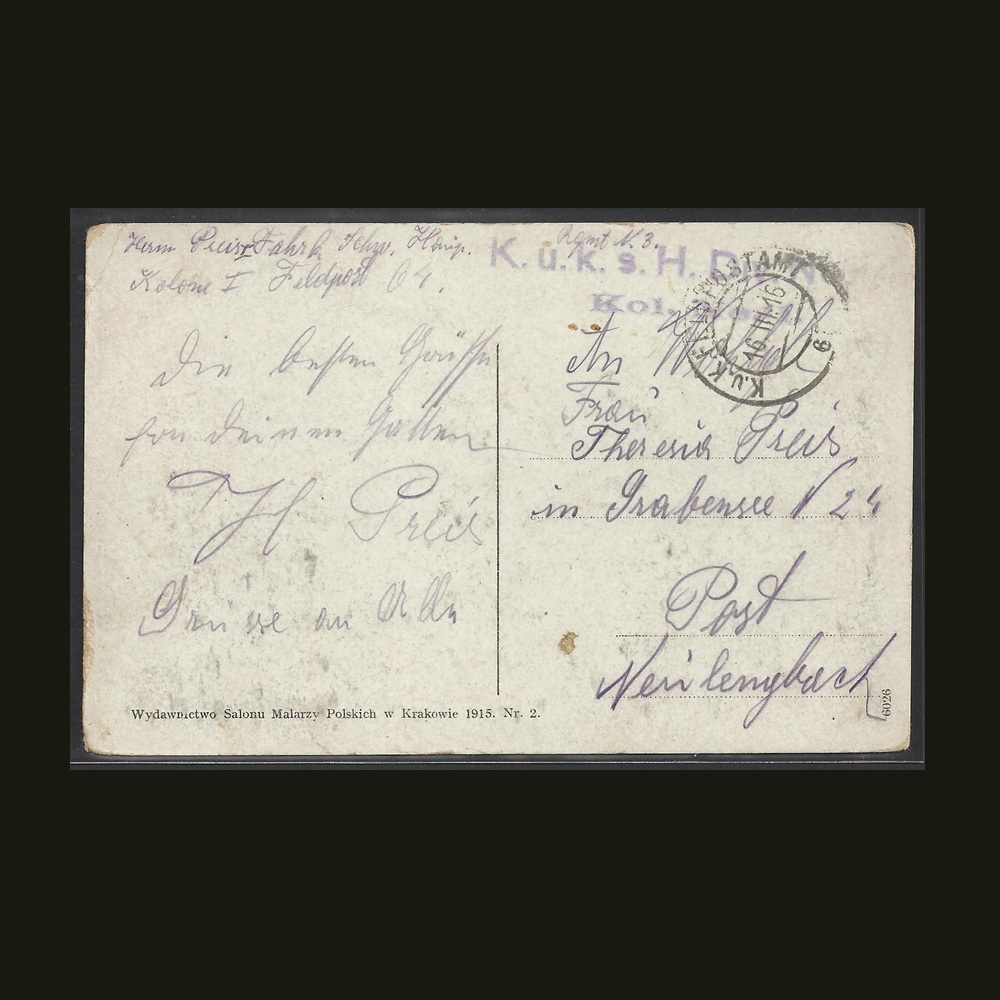 Herm Preis Fahrk. Schw. Haup. Rgmt N. 3.
Kolone I Feldpost 64.
K. u. k. s. H.
Kol.
K.u.K. FELDPOSTAMT
16.III.16
64
Die besten Grüsse
fon deinen Gatten
H Preis
Grüse an Alle
An
Frau
Theresia Preis
in Grabensee N 24
Post
Neulengbach
Wydawnictwo Salonu Malarzy Polskich w Krakowie 1915. Nr. 2.
6026